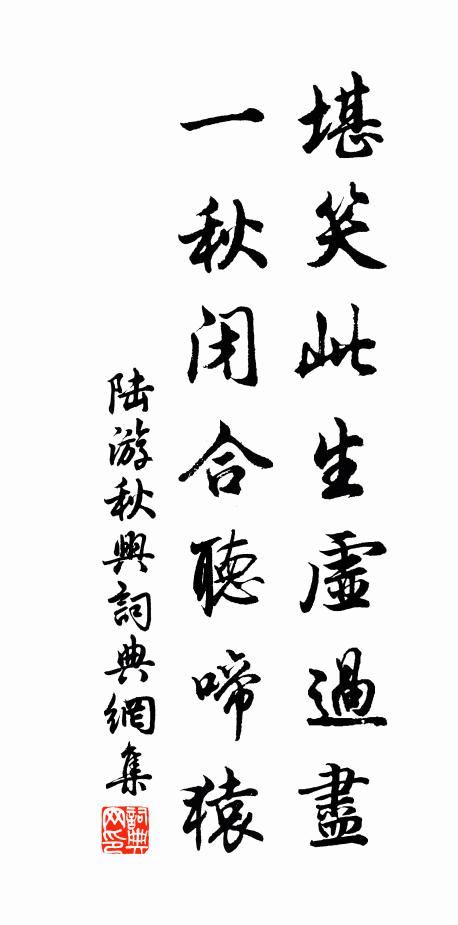 堪笑此生虛過盡
一秋閉合聽啼猿
陆游秋興詞典網集
詞典網印